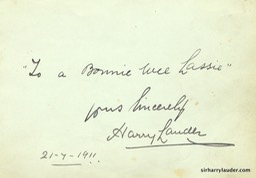 "To a Bonnie wee Lassie"
yours Sincerely
Harry Lauder
21-7-1911
sirharrylauder.com